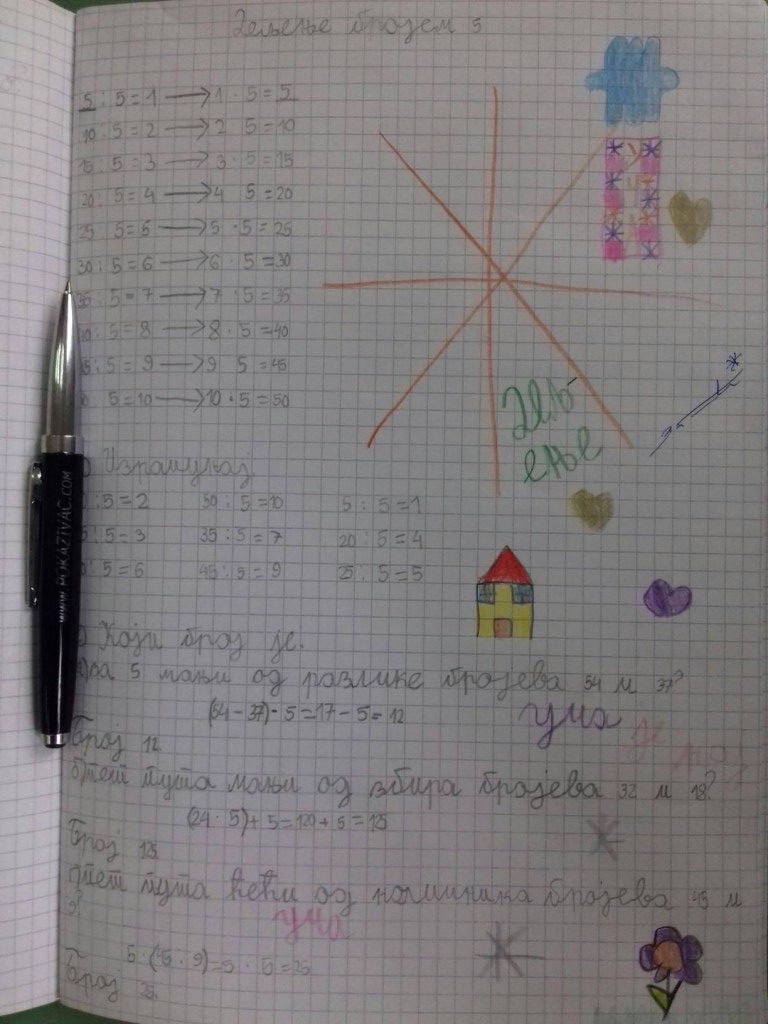 Дељење бројем 5
5 : 5 = 1 → 1 · 5 = 5
10 : 5 = 2 → 2 5 = 10
15 : 5 = 3 → 3 · 5 = 15
20 : 5 = 4 → 4 5 = 20
25 5 = 5 → 5 · 5 = 25
30 : 5 = 6 → 6 · 5 = 30
35 : 5 = 7 → 7 · 5 = 35
40 : 5 = 8 → 8 · 5 = 40
45 : 5 = 9 → 9 5 = 45
5 = 10 → 10 · 5 = 50
Дељ
ење
Израчунај
: 5 = 2 50 : 5 = 10 5 : 5 = 1
: 5 = 3 35 : 5 = 7 20 : 5 = 4
: 5 = 6 45 : 5 = 9 25 : 5 = 5
Који број је.
за 5 мањи од разлике бројева 54 и 37?
(54 - 37) - 5 = 17 - 5 = 12
Број 12.
уна
б) пет пута мањи од збира бројева 32 и 18?
(24 · 5) + 5 = 120 + 5 = 125
Број 125.
пет пута већи од количника бројева 45 и
9?
уна
5 · (45 : 9) = 5 · 5 = 25
Број 25.
WWW.POKAZIVAC.COM